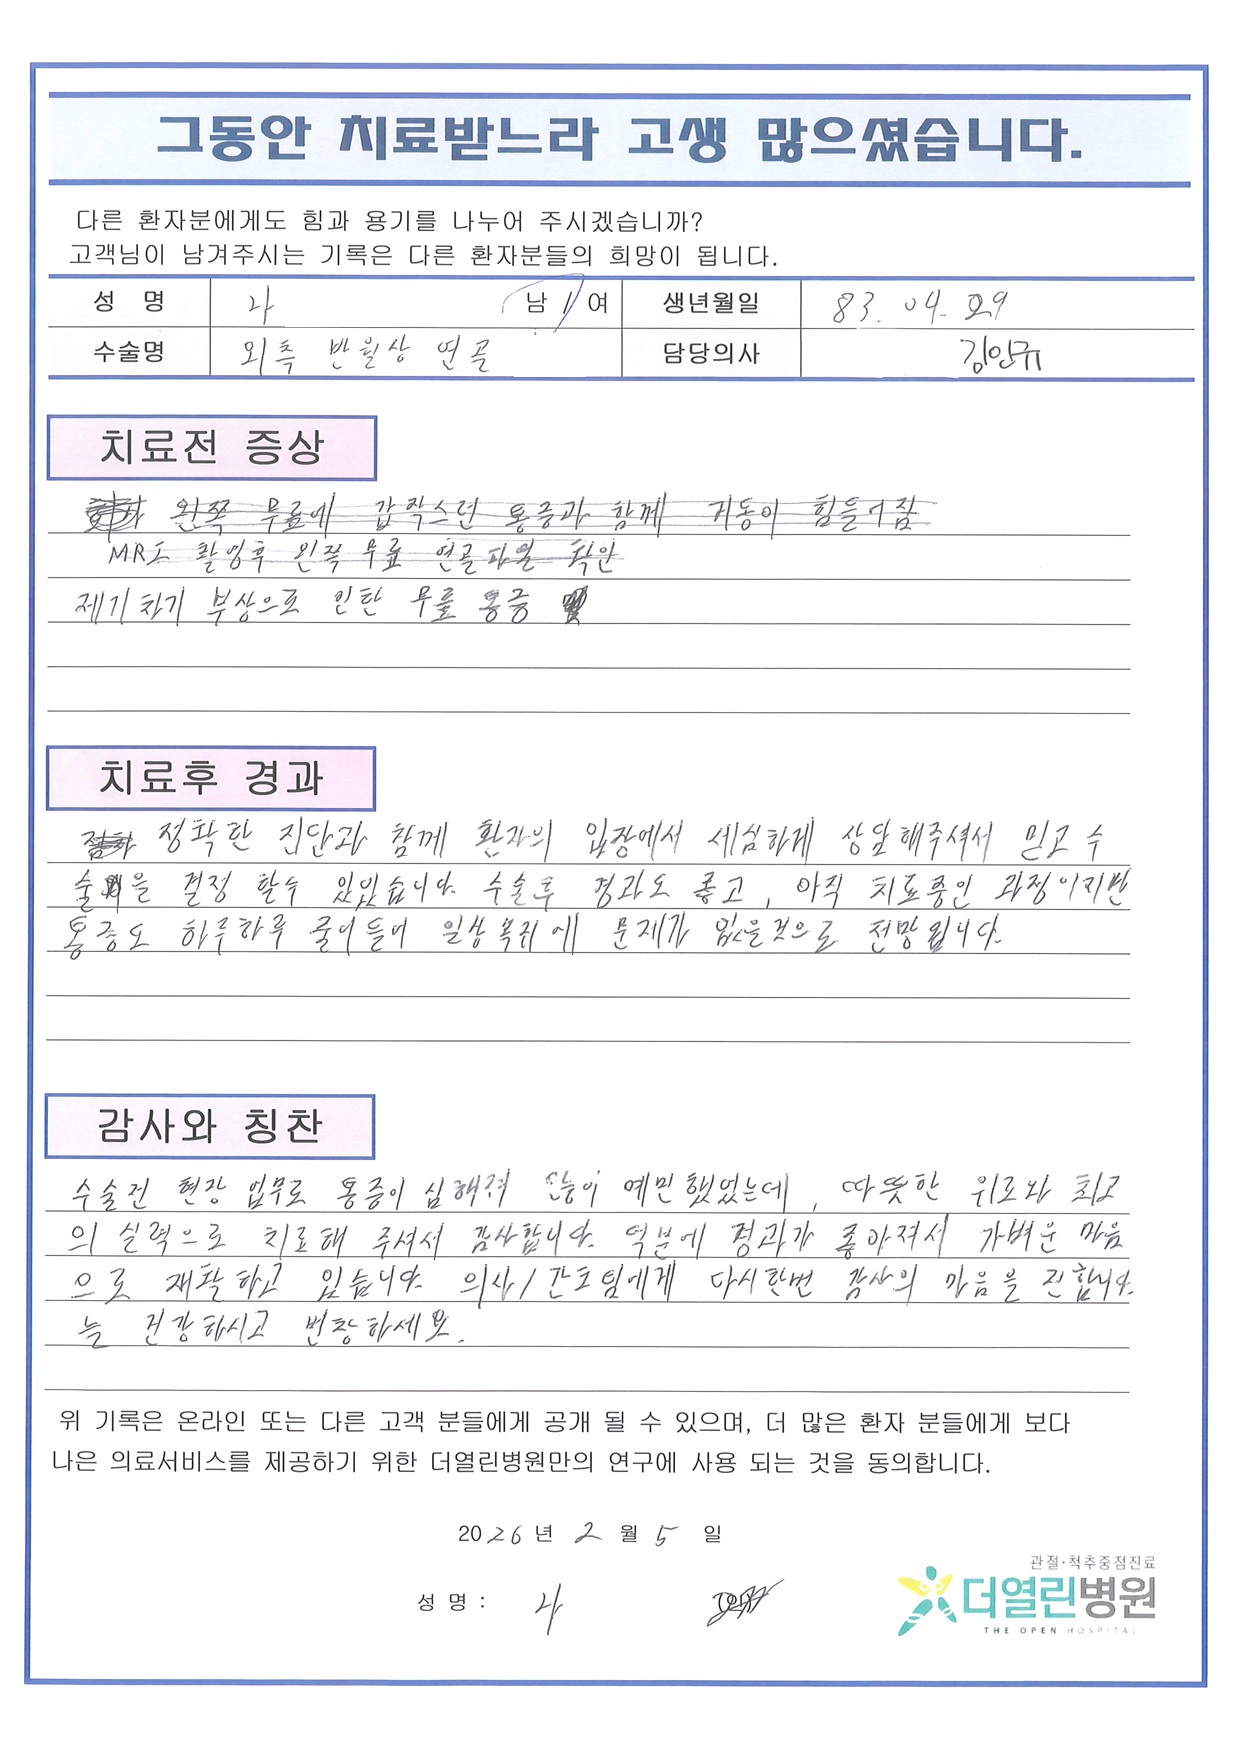 그동안 치료받느라 고생 많으셨습니다.
다른 환자분에게도 힘과 용기를 나누어 주시겠습니까?
고객님이 남겨주시는 기록은 다른 환자분들의 희망이 됩니다.
성 명 나 남 / 여 생년월일 83. 04. 29
수술명 외측 반월상 연골 담당의사 김인규
치료전 증상
왼쪽 무료에 갑작스런 통증과 함께 거동이 힘들어짐
MRI 촬영후 왼쪽 무료 연골파열 확인
제기차기 부상으로 인한 무릎 통증
치료후 경과
정확한 진단과 함께 환자의 입장에서 세심하게 상담해주셔서 믿고 수
술을 결정 할수 있었습니다. 수술후 경과도 좋고, 아직 치료중인 과정이지만
통증도 하루하루 줄어들어 일상복귀에 문제가 없을것으로 전망됩니다.
감사와 칭찬
수술전 현장 업무로 통증이 심해져 많이 예민했었는데, 따뜻한 위로와 최고
의 실력으로 치료해 주셔서 감사합니다. 덕분에 경과가 좋아져서 가벼운 마음
으로 재활하고 있습니다. 의사/간호팀에게 다시한번 감사의 마음을 전합니다.
늘 건강하시고 번창하세요.
위 기록은 온라인 또는 다른 고객 분들에게 공개 될 수 있으며, 더 많은 환자 분들에게 보다
나은 의료서비스를 제공하기 위한 더열린병원만의 연구에 사용 되는 것을 동의합니다.
2026년 2월 5일
관절·척추중점진료
성 명 : 나
더열린병원
THE OPEN HOSPITAL